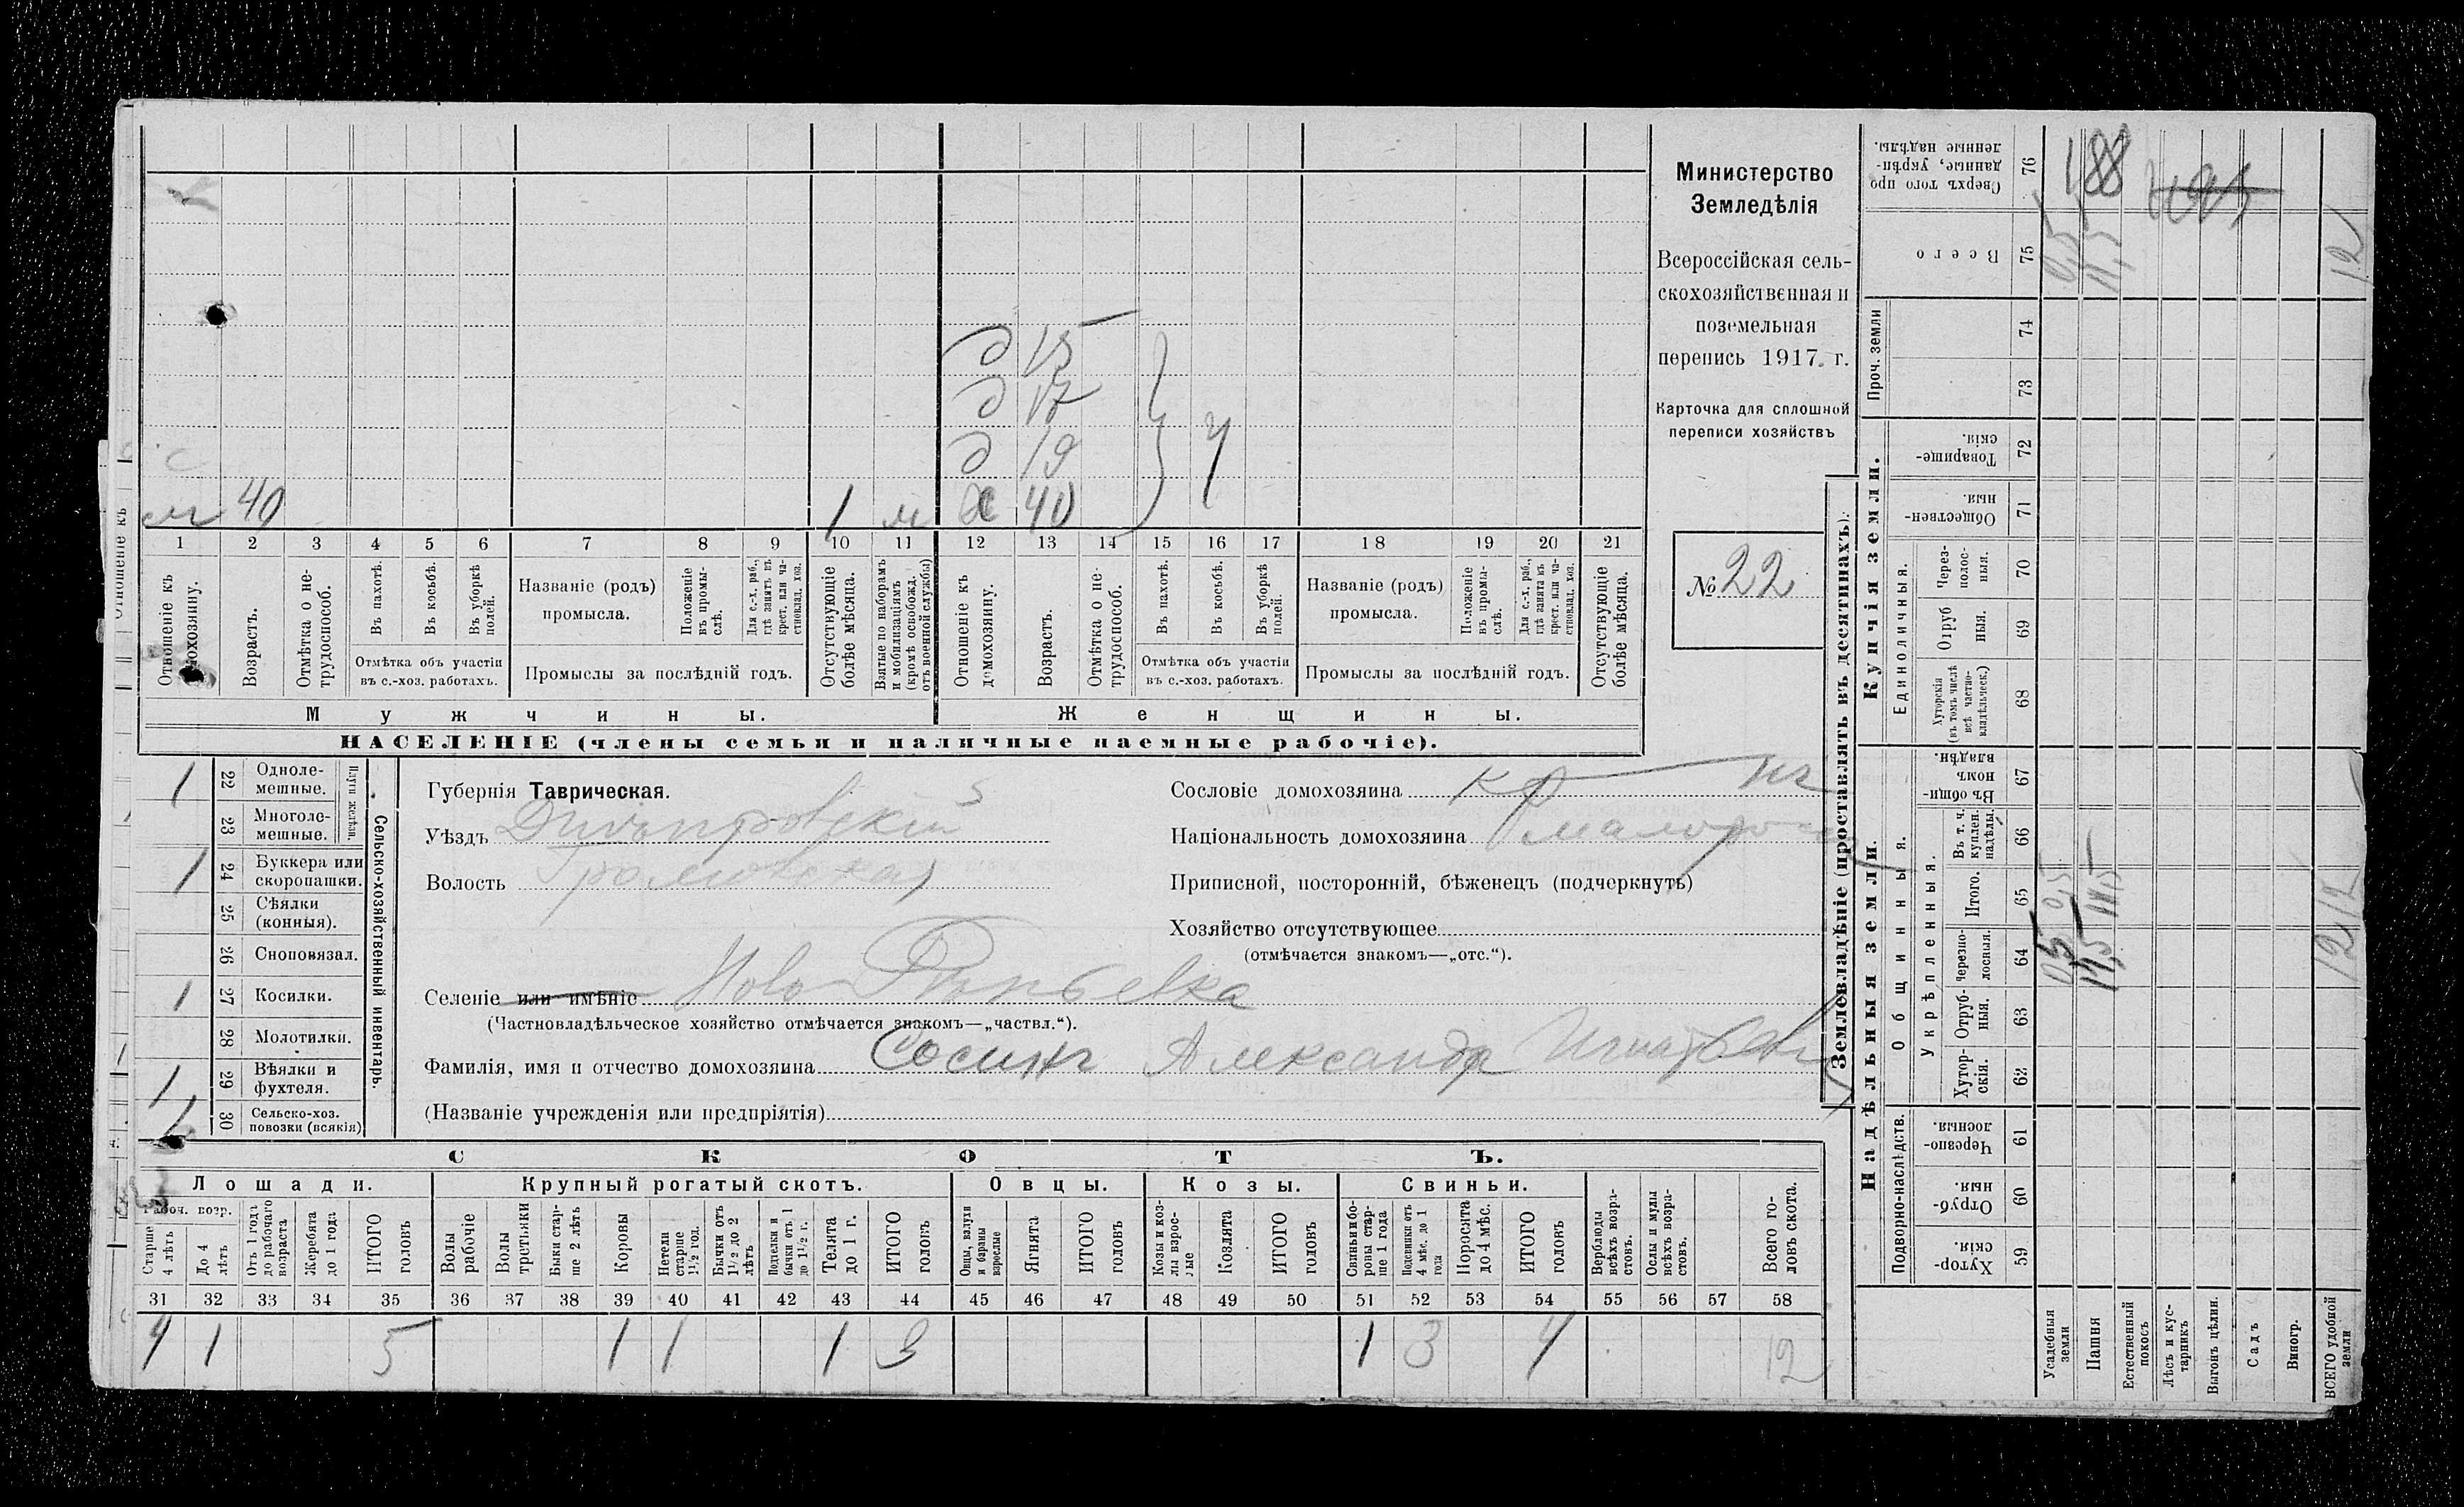 Министерство
Земледѣлія
Всероссійская сель-
скохозяйственная и
поземельная
перепись 1917. г.
Карточка для сплошной
переписи хозяйствъ
№ 22
д 15
д 17
д 19
м 40 1 х 40 4
1 2 3 4 5 6 7 8 9 10 11 12 13 14 15 16 17 18 19 20 21
Отношеніе къ домохозяину.
Возрастъ.
Отмѣтка о не-трудоспособ.
Въ пахотѣ.
Въ косьбѣ.
Въ уборкѣ полей.
Отмѣтка объ участіи
въ с.-хоз. работахъ.
Названіе (родъ)
промысла.
Положеніе въ промы-слѣ.
Для с.-х. раб., гдѣ занятъ въ крест. или ча-стновлад. хоз.
Промыслы за послѣдній годъ.
Отсутствующіе болѣе мѣсяца.
Взятые по наборамъ и мобилизаціямъ (кромѣ освобожд. отъ военной службы)
Отношеніе къ домохозяину.
Возрастъ.
Отмѣтка о не-трудоспособ.
Въ пахотѣ.
Въ косьбѣ.
Въ уборкѣ полей.
Отмѣтка объ участіи
въ с.-хоз. работахъ.
Названіе (родъ)
промысла.
Положеніе въ промы-слѣ.
Для с.-х. раб., гдѣ занята въ крест. или ча-стновлад. хоз.
Промыслы за послѣдній годъ.
Отсутствующіе болѣе мѣсяца.
Мужчины.
Женщины.
НАСЕЛЕНІЕ (члены семьи и наличные наемные рабочіе).
Сельско-хозяйственный инвентарь.
Плуги желѣзн.
1 22 Одноле-мешные.
23 Многоле-мешные.
1 24 Буккера или скоропашки.
25 Сѣялки (конныя).
26 Сноповязал.
1 27 Косилки.
28 Молотилки.
1 29 Вѣялки и фухтеля.
1 30 Сельско-хоз. повозки (всякія)
Губернія Таврическая.
Уѣздъ Днѣпровскій
Волость Громовская
Селеніе или имѣніе
(Частновладѣльческое хозяйство отмѣчается знакомъ—„частвл.“).
Фамилія, имя и отчество домохозяина Александр Игнатьев
(Названіе учрежденія или предпріятія)
Сословіе домохозяина кр
Національность домохозяина малоросс
Приписной, посторонній, бѣженецъ (подчеркнуть)
Хозяйство отсутствующее
(отмѣчается знакомъ—„отс.“).
СКОТЪ.
Лошади.
Крупный рогатый скотъ.
Овцы.
Козы.
Свиньи.
Рабоч. возр.
Старше 4 лѣтъ
До 4 лѣтъ
Отъ 1 года до рабочаго возраста
Жеребята до 1 года
ИТОГО головъ
Волы рабочіе
Волы третьяки
Быки стар-ше 2 лѣтъ
Коровы
Нетели старше 1½ год.
Бычки отъ 1½ до 2 лѣтъ
Подтелки и бычки отъ 1 до 1½ г.
Телята до 1 г.
ИТОГО головъ
Овцы, валухи и бараны взрослые
Ягнята
ИТОГО головъ
Козы и коз-лы взрос-лые
Козлята
ИТОГО головъ
Свиньи и бо-ровы стар-ше 1 года
Подсвинки отъ 4 мѣс. до 1 года
Поросята до 4 мѣс.
ИТОГО головъ
Верблюды всѣхъ возра-стовъ.
Ослы и мулы всѣхъ возра-стовъ.
Всего го-ловъ скота.
31 32 33 34 35 36 37 38 39 40 41 42 43 44 45 46 47 48 49 50 51 52 53 54 55 56 57 58
4 1 5 1 1 1 3 1 3 4 12
Землевладѣніе (проставлять въ десятинахъ).
Надѣльныя земли.
Купчія земли.
Проч. земли
Подворно-наслѣдств.
Общинныя.
Укрѣпленныя.
Единоличныя.
Сверхъ того про данные, укрѣп-ленные надѣлы. 76
Всего 75
74
73
Товарище-скія. 72
Обществен-ныя. 71
Через-полос-ныя. 70
Отруб ныя. 69
Хуторскія (въ томъ числѣ всѣ частно-владѣльческ.) 68
Въ общи-номъ владѣн. 67
Въ т. ч. куплен. надѣлы. 66
Итого. 65
Черезпо-лосныя. 64
Отруб-ныя. 63
Хутор-скія. 62
Черезпо-лосныя 61
Отруб-ныя. 60
Хутор-скія. 59
Усадебныя земли
Пашня
Естественный покосъ
Лѣсъ и кус-тарникъ
Выгонъ цѣлин.
Садъ
Виногр.
ВСЕГО удобной земли
188
0,5 11,5 12
0,5 11,5 12